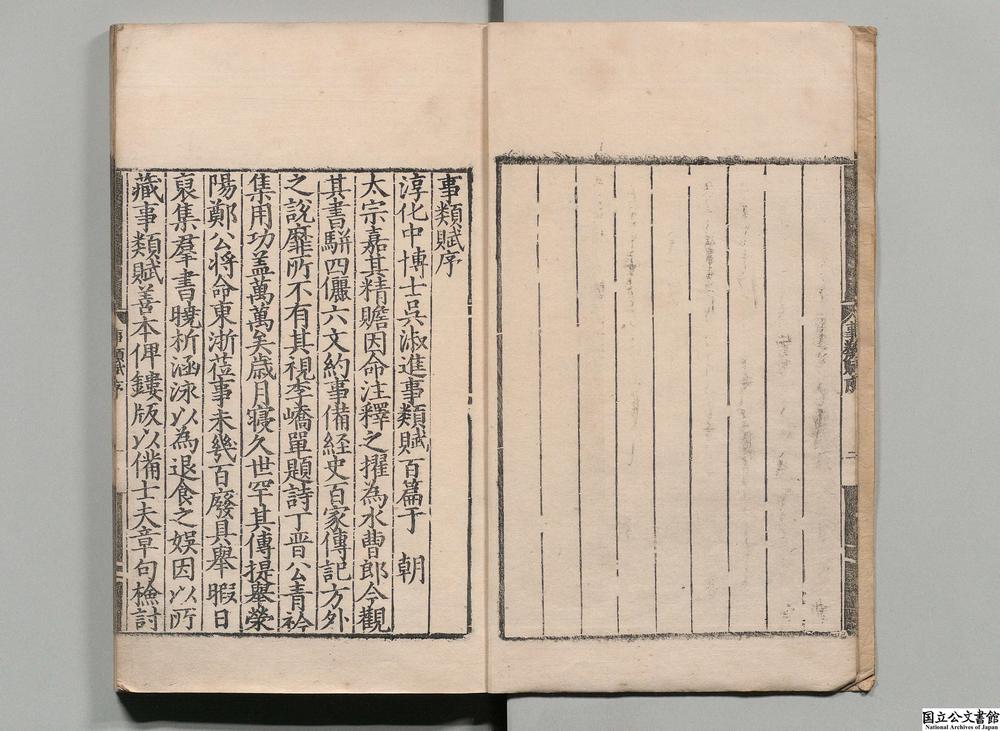 事類賦序
淳化中博士吳淑進事類賦百篇于　朝
太宗嘉其精贍因命注釋之擢為水曹郎今觀
其書騈四儷六文約事備経史百家傳記方外
之說靡所不有其視李嶠單題詩丁晋公青衿
集用功盖萬萬矣歳月寖久世罕其傳提舉榮
陽鄭公将命東浙莅事未㡬百廢具舉暇日
裒集羣書曉析涵泳以為退食之娱因以所
藏事類賦善本俾鏤版以備士夫章句檢討
事類賦序
一
事類賦序
二
国立公文書館
National Archives of Japan